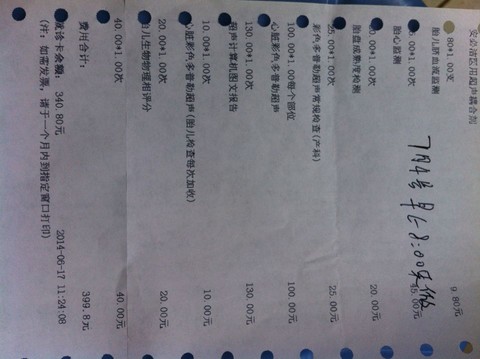 安必洁医用超声耦合剂
.80*1.00支 9.80元
胎儿脐血流监测
.00*1.00次 45.00元
胎心监测
20.00*1.00次 20.00元
7月4号早上8:00来做
胎盘成熟度检测
25.00*1.00次 25.00元
彩色多普勒超声常规检查(产科)
100.00*1.00每个部位 100.00元
心脏彩色多普勒超声
130.00*1.00次 130.00元
超声计算机图文报告
10.00*1.00次 10.00元
心脏彩色多普勒超声(胎儿检查每次加收)
20.00*1.00次 20.00元
胎儿生物物理相评分
40.00*1.00次 40.00元
费用合计: 399.8元
就诊卡余额: 340.80元 2014-06-17 11:24:08
(注: 如需发票, 请于一个月内到指定窗口打印)